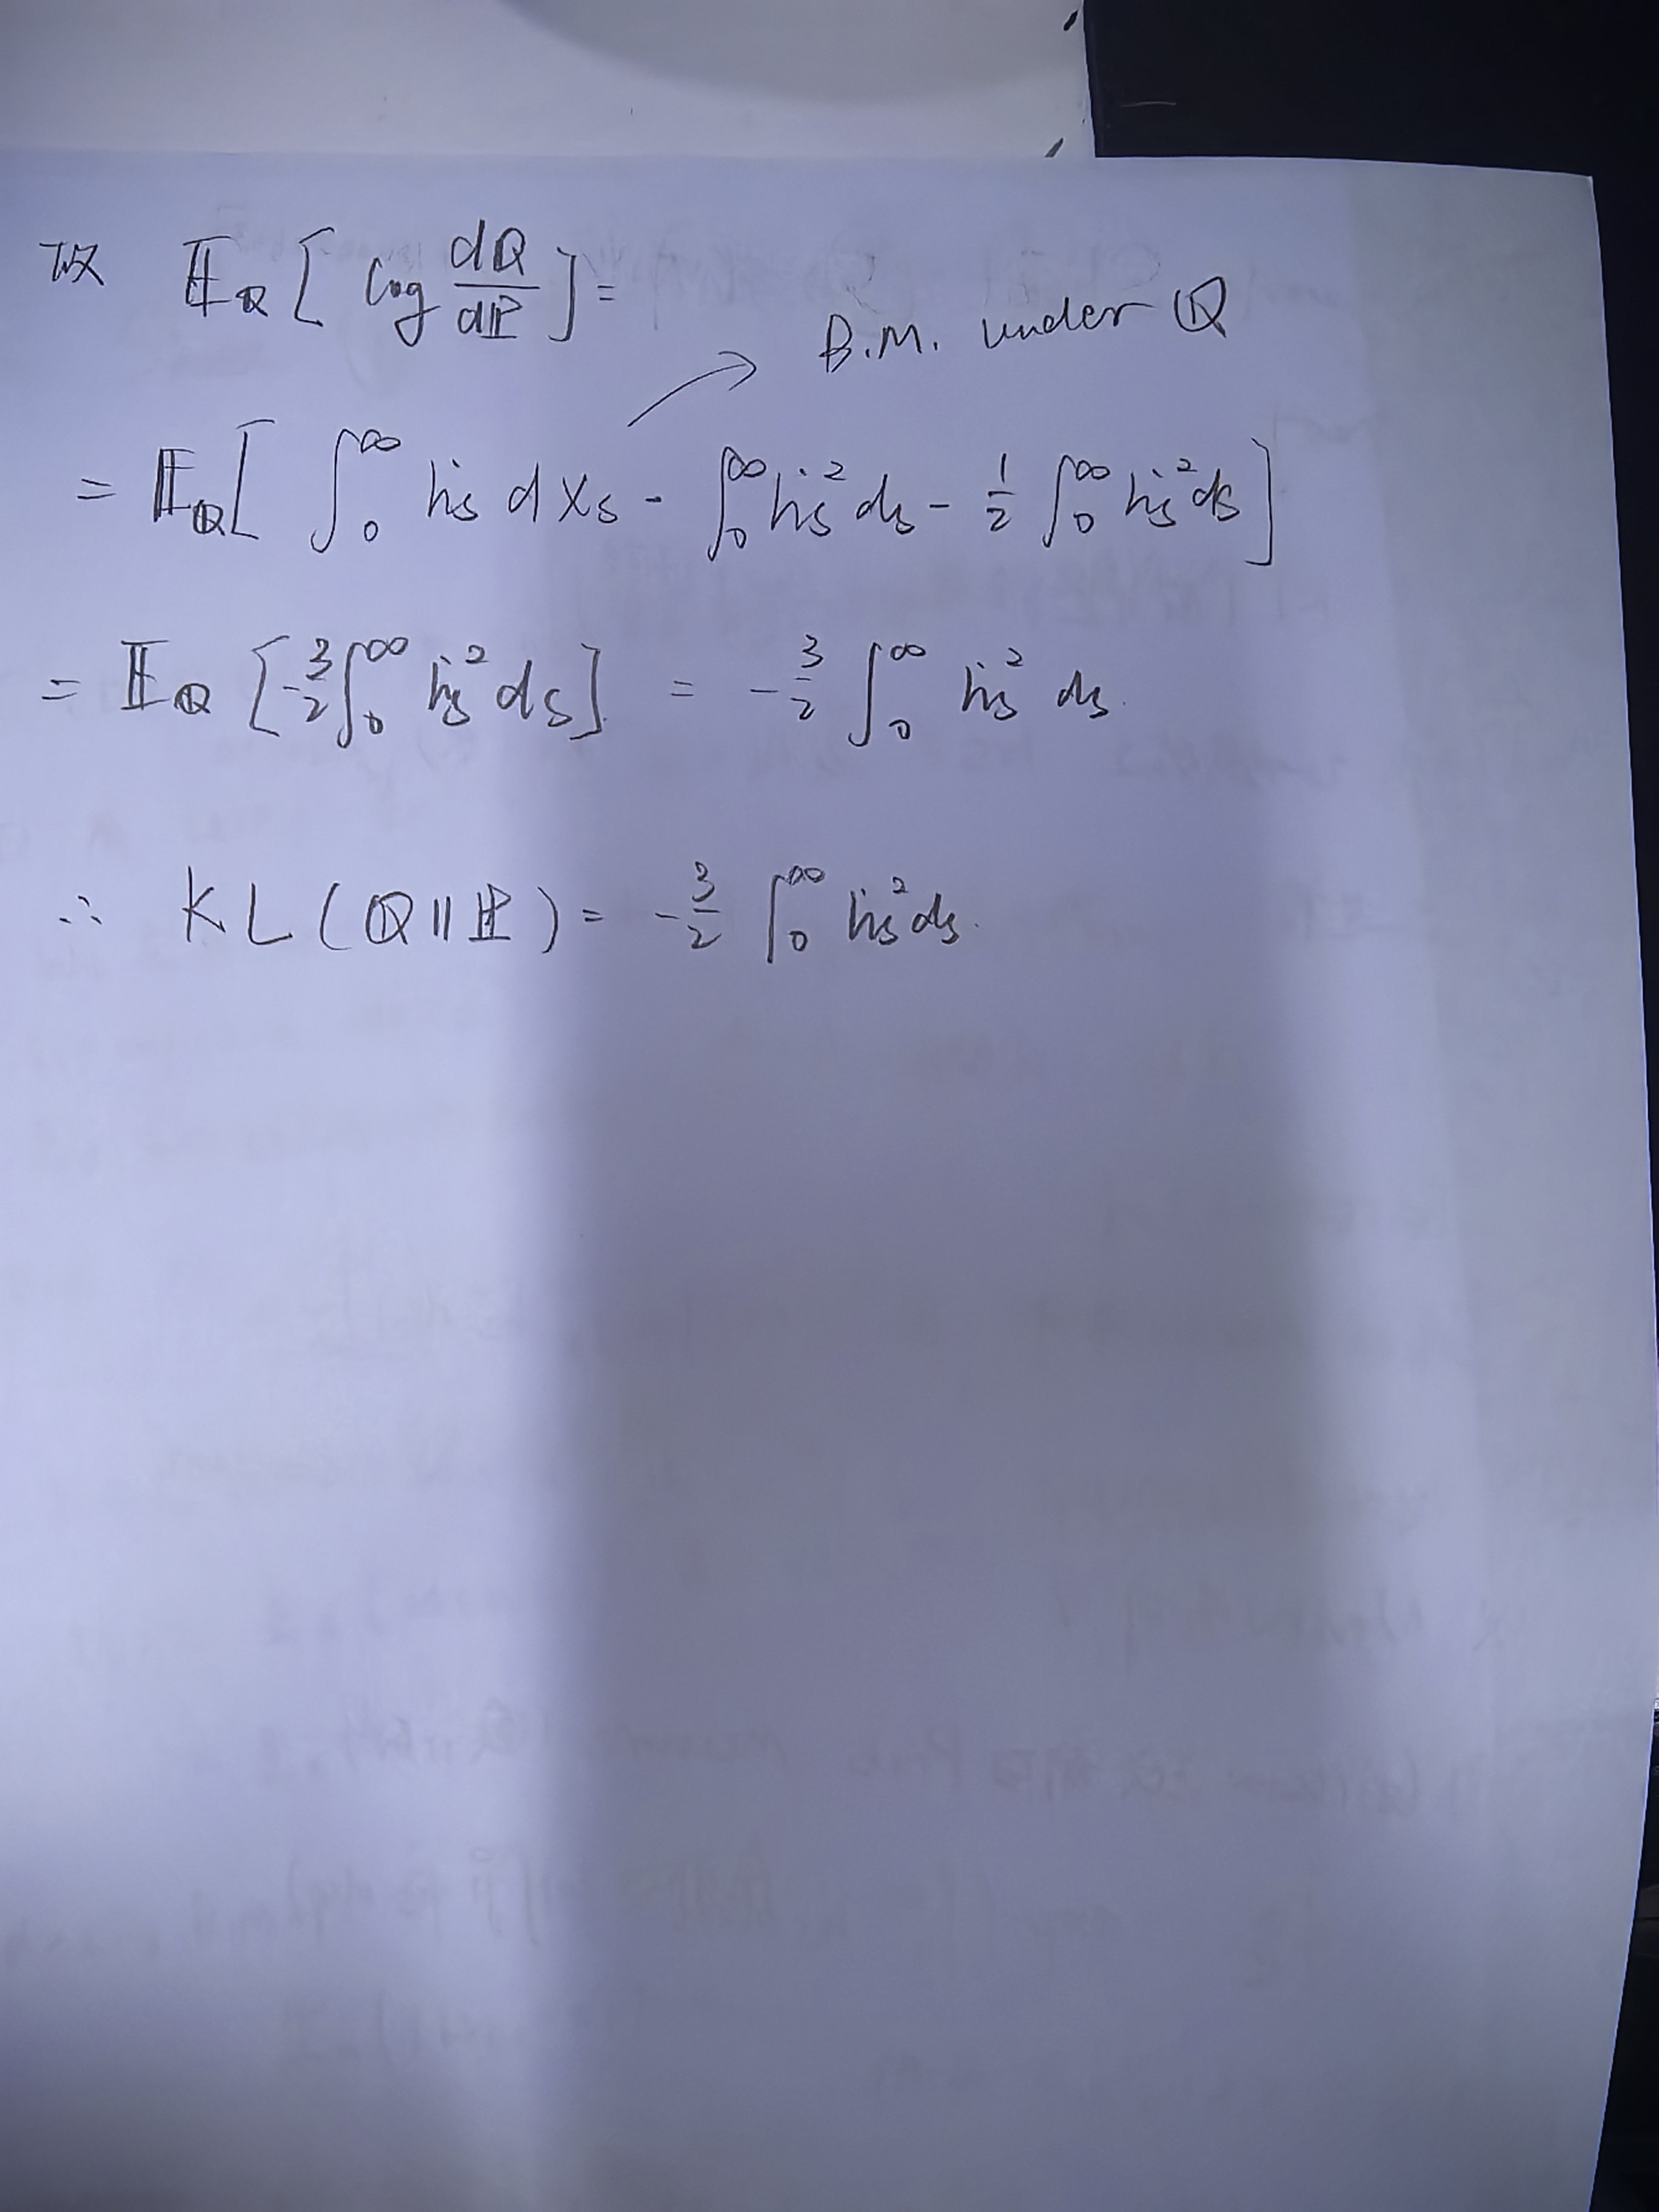 故 𝔼_ℚ [ log dℚ/dℙ ] =
B.M. under ℚ
= 𝔼_ℚ [ ∫₀^∞ ḣₛ dXₛ - ∫₀^∞ ḣₛ² ds - 1/2 ∫₀^∞ ḣₛ² ds ]
= 𝔼_ℚ [ -3/2 ∫₀^∞ ḣₛ² ds ] = -3/2 ∫₀^∞ ḣₛ² ds.
∴ KL(ℚ||ℙ) = -3/2 ∫₀^∞ ḣₛ² ds.